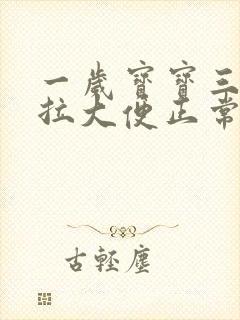 一歲寶寶三
拉大便正常
古輕塵